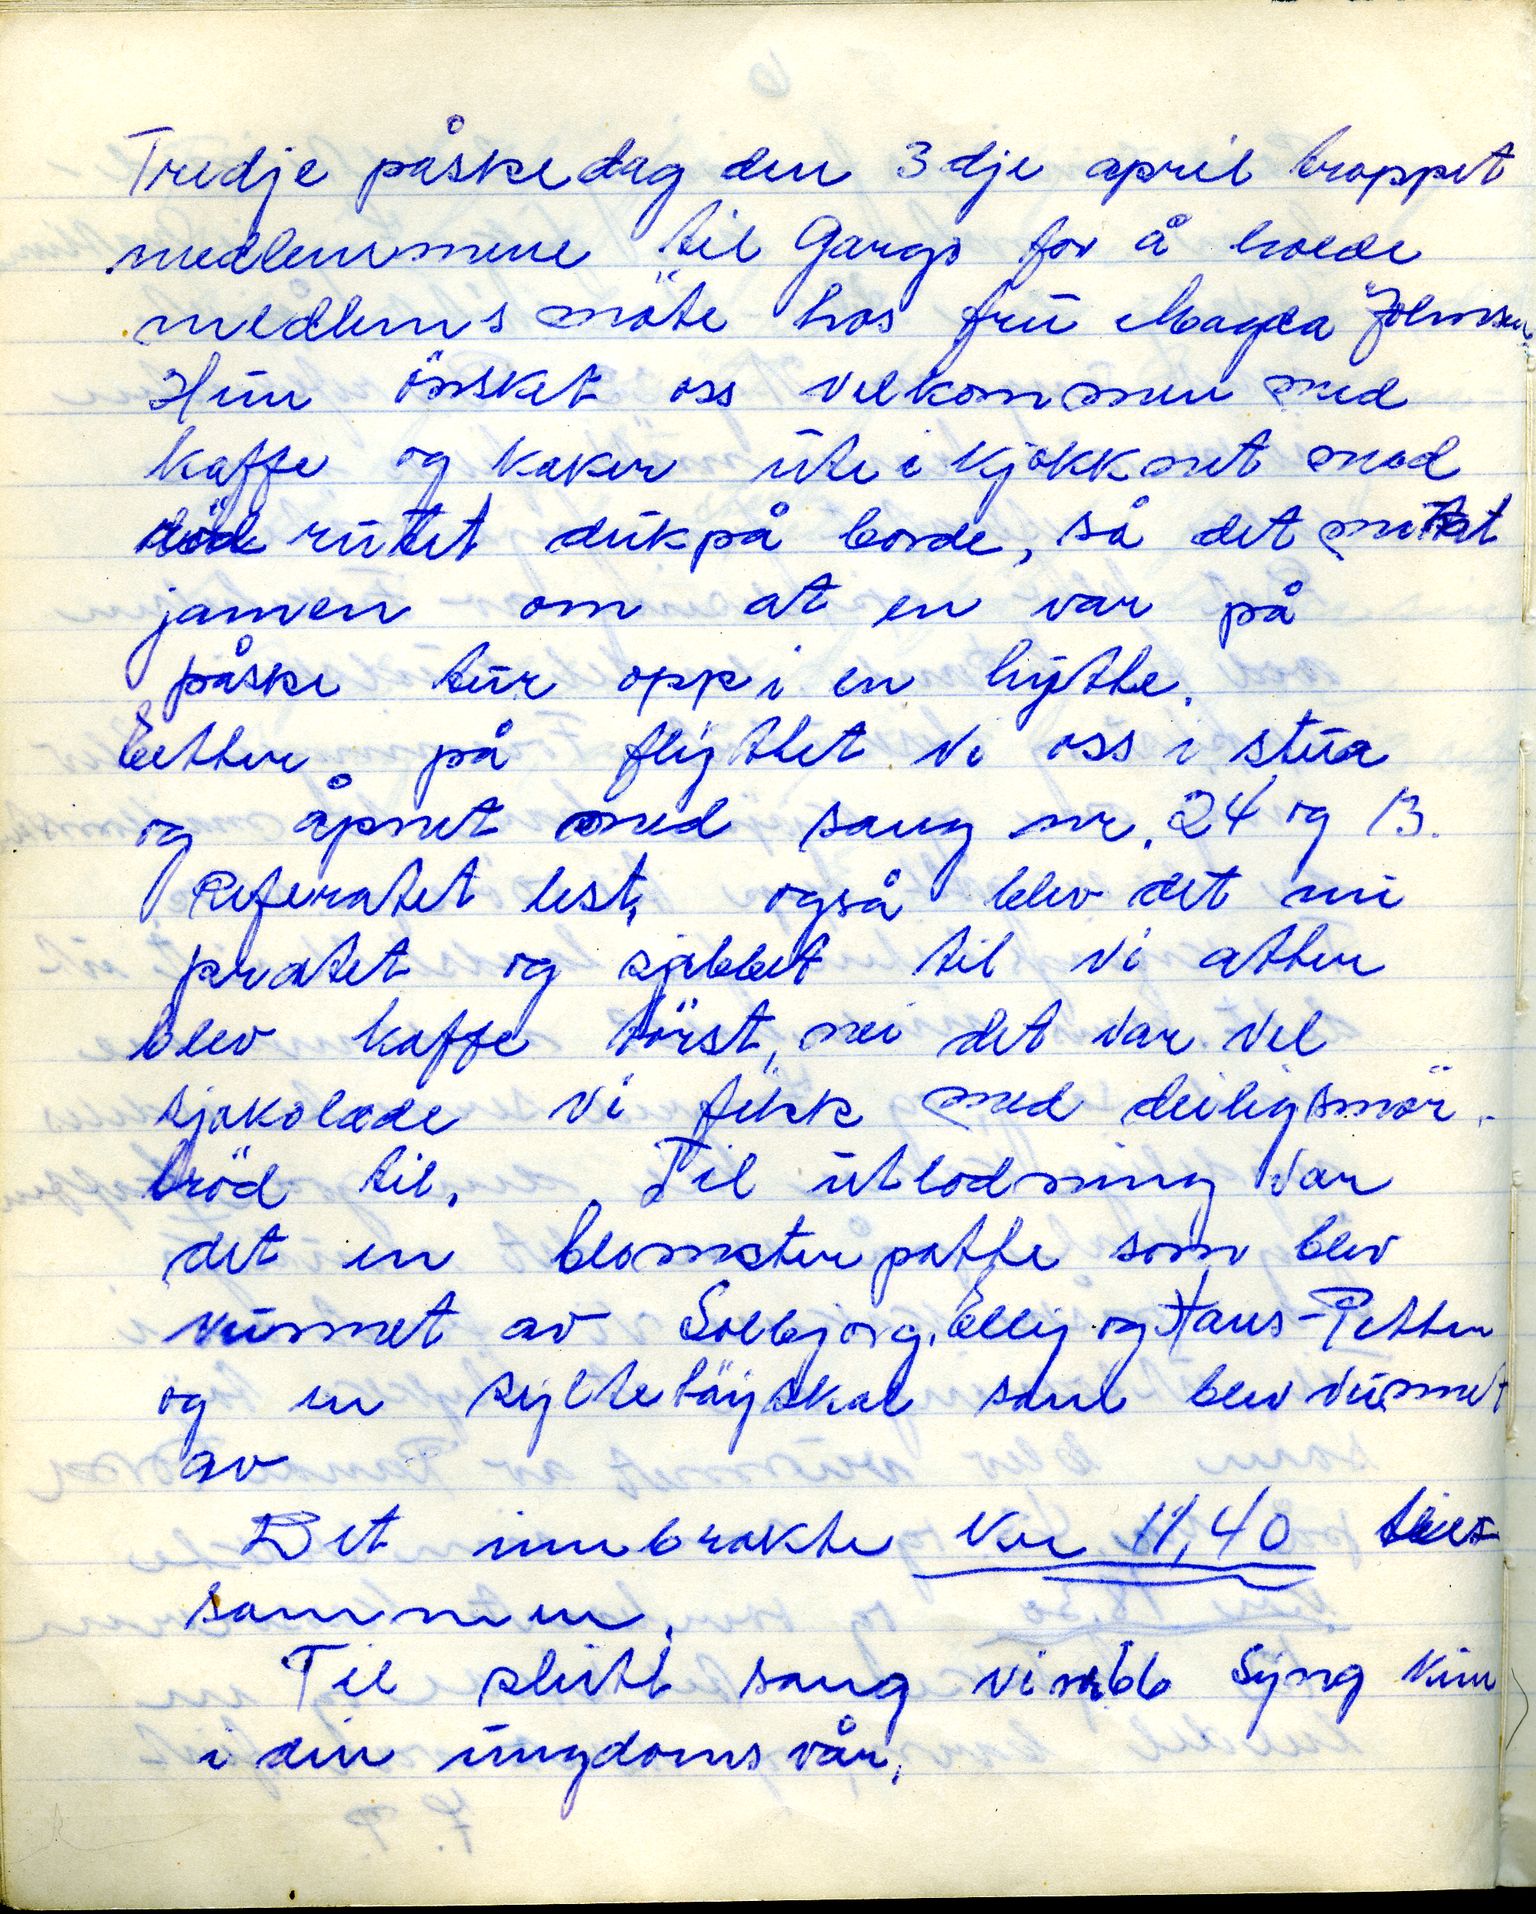 Tredje påskedag den 3dje april troppet
medlemmene til Gargo for å holde
medlems möte hos frü Magda Johnsen
Hun önsket oss velkommen med
kaffe og kaker ute i kjökknet med
röd rutet duk på borde, så det
jamen om at en var på
påske tur opp i en hytte.
Etter på flyttet vi oss i stua
og åpnet med sang nr. 24 og 13.
Referatet lest, også blev det nu
pratet og sjabbet til vi atter
blev kaffe törst, nei det var vel
sjokolade vi fikk med deilig smör-
bröd til. Til utlodning var
det en blomster potte som blev
vunnet av Solbjorg, Elly og Hans-Petter
og en syltetöyskål som blev vunnet
av
Det innbrakte Kr 11,40 til
sammen.
Til slutt sang vi nr 66 Syng kun
i din ungdoms vår.